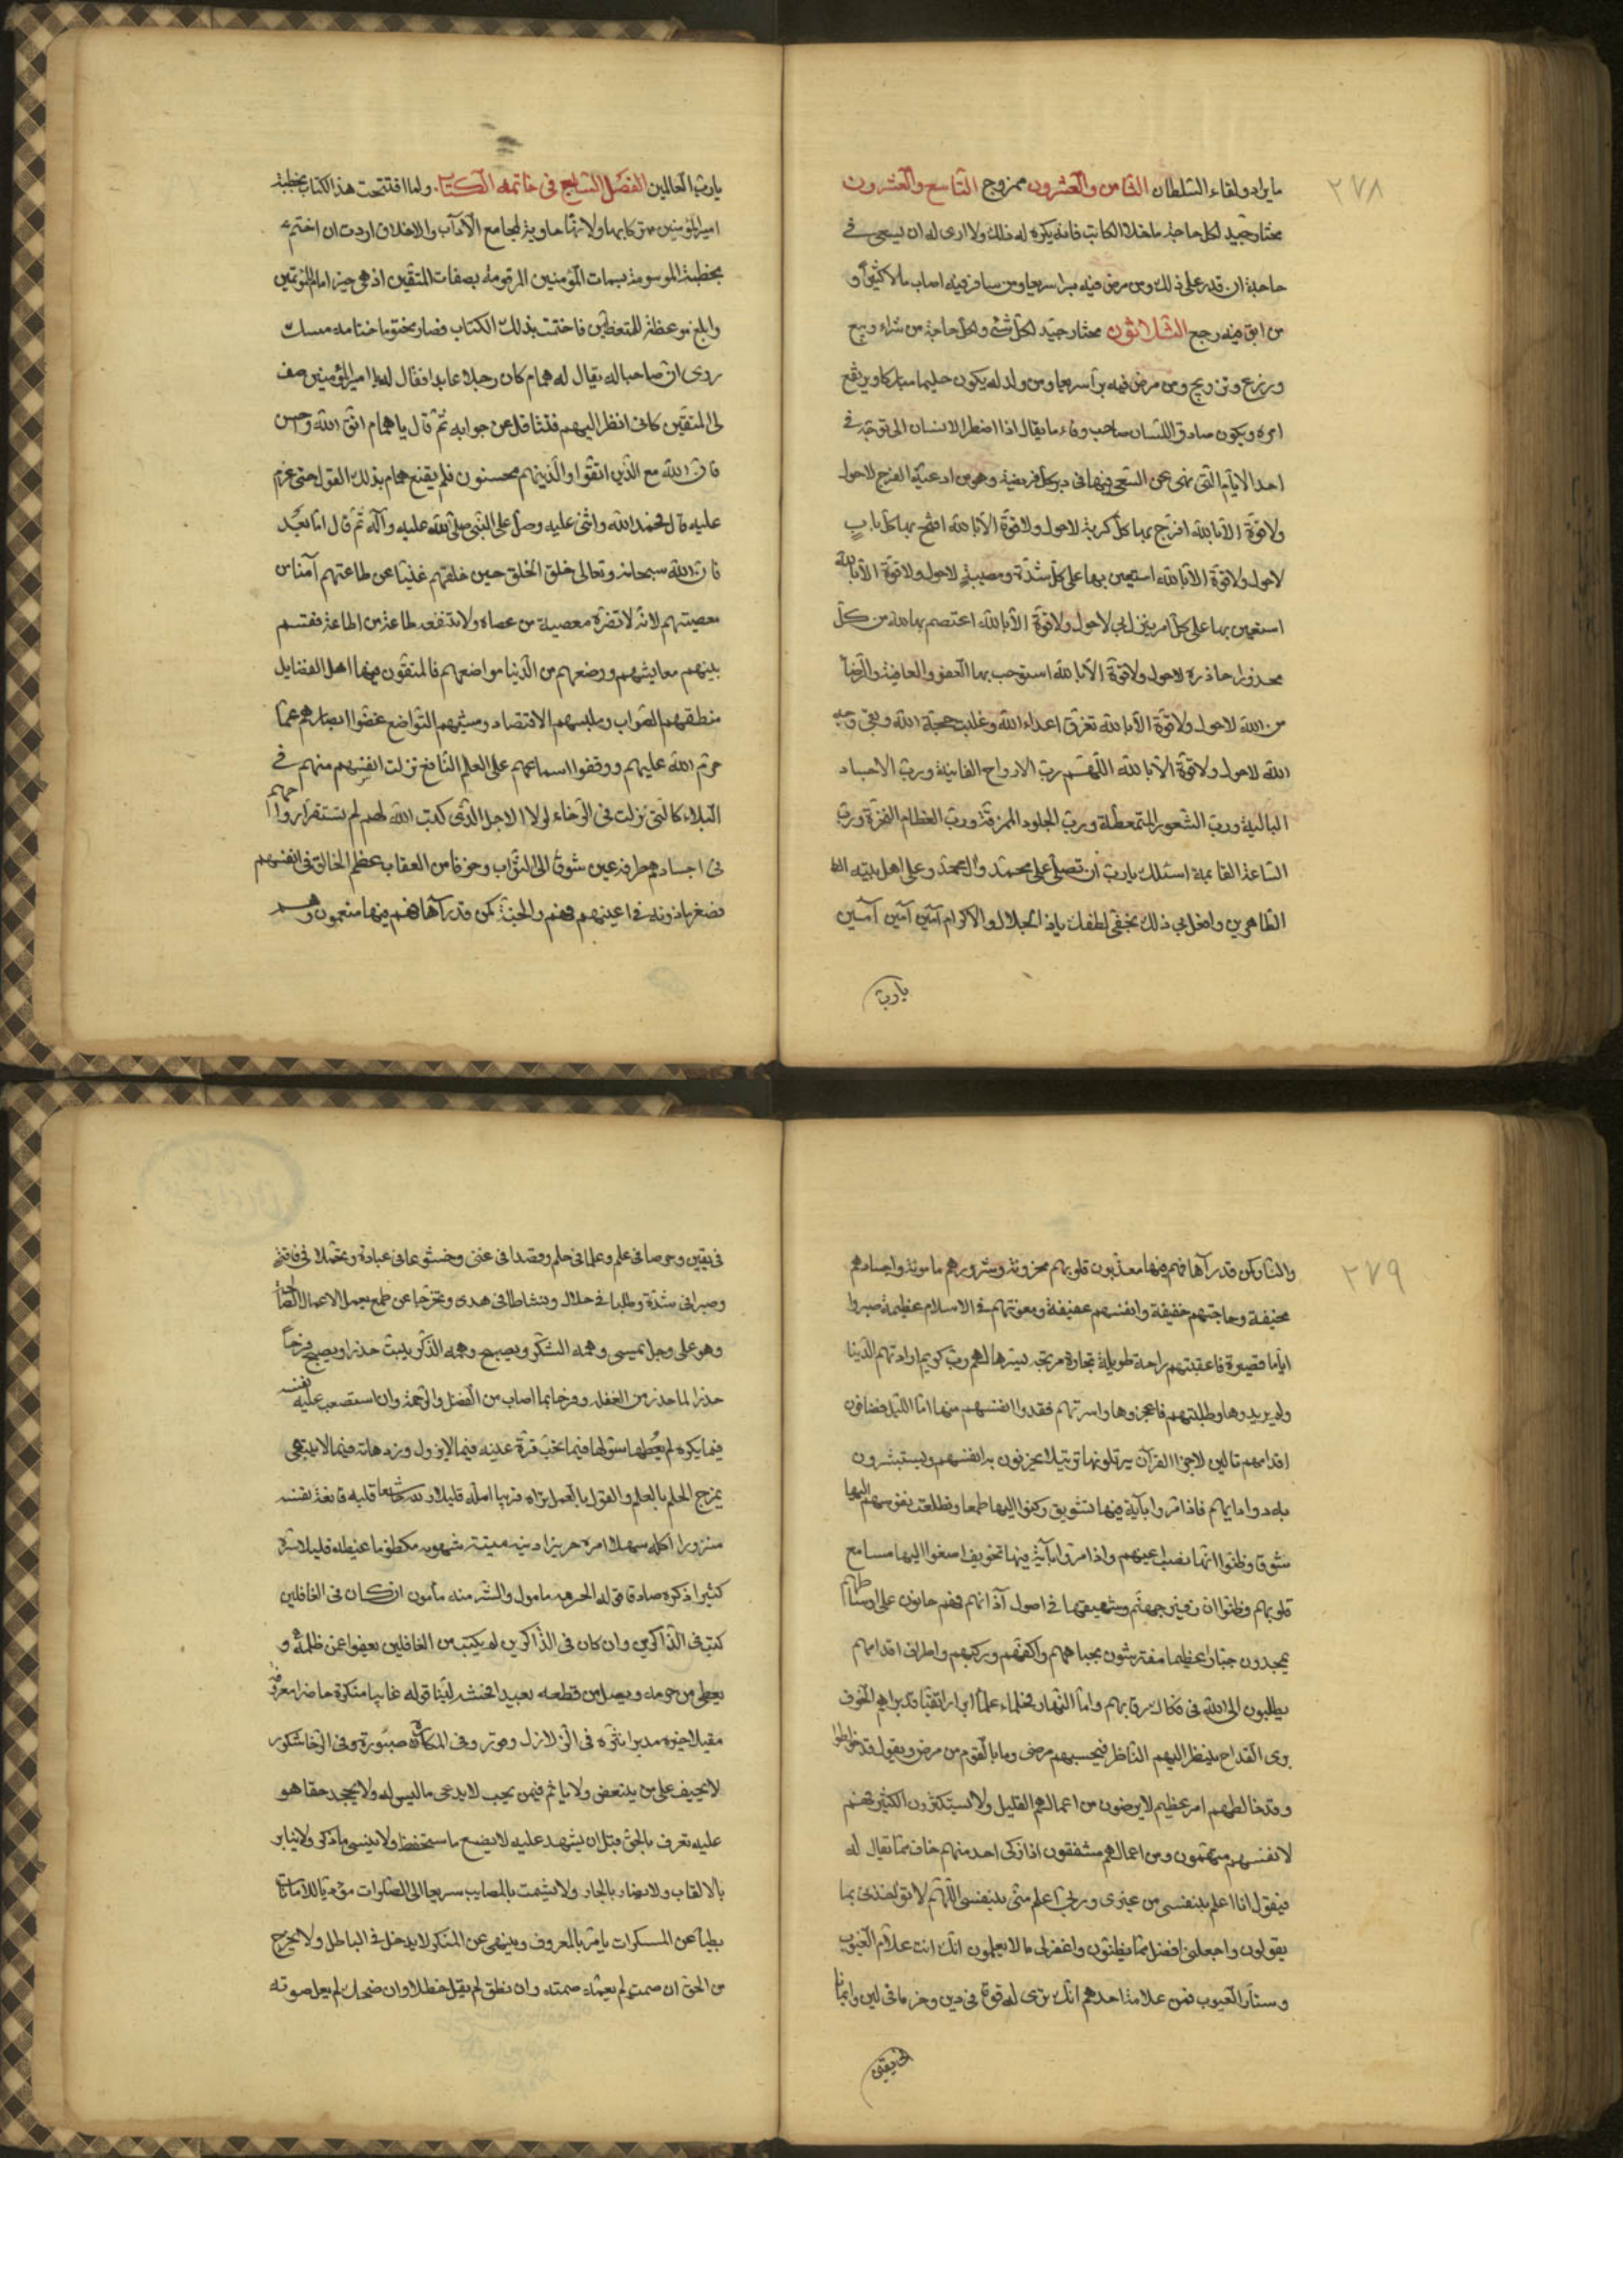 ٢٧٨
ما يراد ولقاء السلطان الثامن والعشرون ممزوج التاسع والعشرون
مختار جيد لكل حاجة ما خلا الكاتب فانه يكره له ذلك ولا ارى له ان يسعى في
حاجة ان قدر على ذلك ومن مرض فيه يبرا سريعا ومن سافر فيه اصاب مالا كثيرا و
من ابق فيه رجع الثلاثون مختار جيد لكل شئ ولكل حاجة من شراء وبيع
وزرع وتزويج ومن مرض فيه برا سريعا ومن ولد له يكون حليما مباركا ويرتفع
امره ويكون صادق اللسان صاحب وفاء ما يقال اذا اضطر الانسان الى توجه في
احد الايام التى نهى عن السعى فيها فى دبر كل فريضة وهو من ادعية الفرج لا حول
ولا قوة الا بالله افرج بها كل كربة لا حول ولا قوة الا بالله افتح بها كل باب
لا حول ولا قوة الا بالله استعين بها على كل شدة ومصيبة لا حول ولا قوة الا بالله
استعين بها على كل امر ينزل بي لا حول ولا قوة الا بالله اعتصم بها من كل
محذور احاذره لا حول ولا قوة الا بالله استوجب بها العفو والعافية والرضا
من الله لا حول ولا قوة الا بالله تفرق اعداء الله وغلبت حجة الله وبقى وجه
الله لا حول ولا قوة الا بالله اللهم رب الارواح الفانية ورب الاجساد
البالية ورب الشعور المتمعطة ورب الجلود الممزقة ورب العظام النخرة ورب
الساعة القائمة اسئلك يا رب ان تصلى على محمد وال محمد وعلى اهل بيته
الطاهرين وافعل بي ذلك بخفى لطفك يا ذا الجلال والاكرام آمين آمين آمين
يا رب
يا رب العالمين الفصل السابع فى خاتمة الكتاب ولما افتتحت هذا الكتاب بخطبة
امير المؤمنين تبركا بها ولانها حاوية لمجامع الآداب والاخلاق اردت ان اختمه
بخطبة الموسومة بسمات المؤمنين المرقومة بصفات المتقين اذ هى خير امام للمؤتمين
وابلغ موعظة للمتعظين فاختمت بذلك الكتاب فصار مختوما ختامه مسك
روى ان صاحبا له يقال له همام كان رجلا عابدا فقال له يا امير المؤمنين صف
لى المتقين كانى انظر اليهم فتثاقل عن جوابه ثم قال يا همام اتق الله واحسن
فان الله مع الذين اتقوا والذين هم محسنون فلم يقنع همام بذلك القول حتى عزم
عليه قال فحمد الله واثنى عليه وصلى على النبى صلى الله عليه وآله ثم قال اما بعد
فان الله سبحانه وتعالى خلق الخلق حين خلقهم غنيا عن طاعتهم آمنا من
معصيتهم لانه لا تضره معصية من عصاه ولا تنفعه طاعة من اطاعه فقسم
بينهم معايشهم ووضعهم من الدنيا مواضعهم فالمتقون فيها اهل الفضايل
منطقهم الصواب وملبسهم الاقتصاد ومشيهم التواضع غضوا ابصارهم عما
حرم الله عليهم ووقفوا اسماعهم على العلم النافع نزلت انفسهم منهم فى
البلاء كالتى نزلت فى الرخاء لولا الاجل الذى كتب الله لهم لم تستقر ارواحهم
فى اجسادهم طرفة عين شوقا الى الثواب وخوفا من العقاب عظم الخالق فى انفسهم
فصغر ما دونه فى اعينهم فهم والجنة كمن قد رآها فهم فيها منعمون وهم
٢٧٩
والنار كمن قد رآها فهم فيها معذبون قلوبهم محزونة وشرورهم مامونة واجسادهم
نحيفة وحاجتهم خفيفة وانفسهم عفيفة ومعونتهم فى الاسلام عظيمة صبروا
اياما قصيرة فاعقبتهم راحة طويلة تجارة مربحة يسرها لهم رب كريم ارادتهم الدنيا
ولم يريدوها وطلبتهم فاعجزوها واسرتهم ففدوا انفسهم منها اما الليل فصافون
اقدامهم تالين لاجزاء القرآن يرتلونها ترتيلا يحزنون به انفسهم ويستبشرون
به دواء دائهم فاذا مروا بآية فيها تشويق ركنوا اليها طمعا وتطلعت نفوسهم اليها
شوقا وظنوا انها نصب اعينهم واذا مروا بآية فيها تخويف اصغوا اليها مسامع
قلوبهم وظنوا ان زفير جهنم وشهيقها فى اصول آذانهم فهم حانون على اوساطهم
يمجدون جبارا عظيما مفترشون بجباههم واكفهم وركبهم واطراف اقدامهم
يطلبون الى الله فى فكاك رقابهم واما النهار فحلماء علماء ابرار اتقياء قد براهم الخوف
برى القداح ينظر اليهم الناظر فيحسبهم مرضى وما بالقوم من مرض ويقول قد خولطوا
وقد خالطهم امر عظيم لا يرضون من اعمالهم القليل ولا يستكثرون الكثير فهم
لانفسهم متهمون ومن اعمالهم مشفقون اذا زكى احد منهم خاف مما يقال له
فيقول انا اعلم بنفسى من غيرى وربى اعلم منى بنفسى اللهم لا تؤاخذنى بما
يقولون واجعلنى افضل مما يظنون واغفر لى ما لا يعلمون انك انت علام الغيوب
وستار العيوب فمن علامة احدهم انك ترى له قوة فى دين وحزما فى لين وايمانا
فى يقين
فى يقين وحرصا فى علم وعلما فى حلم وقصدا فى غنى وخشوعا فى عبادة وتحملا فى فاقة
وصبرا فى شدة وطلبا فى حلال ونشاطا فى هدى وتحرجا عن طمع يعمل الاعمال الصالحة
وهو على وجل يمسى وهمه الشكر ويصبح وهمه الذكر يبيت حذرا ويصبح فرحا
حذرا لما حذر من الغفلة وفرحا بما اصاب من الفضل والرحمة وان استصعب عليه نفسه
فيما يكره لم يعطها سؤلها فيما تحب قرة عينه فيما لا يزول وزهادته فيما لا يبقى
يمزج الحلم بالعلم والقول بالعمل تراه قريبا امله قليلا زلله خاشعا قلبه قانعة نفسه
منزورا اكله سهلا امره حريزا دينه ميتة شهوته مكظوما غيظه قليلا شره
كثيرا ذكره صادقا قوله الخير منه مامول والشر منه مأمون ان كان فى الغافلين
كتب فى الذاكرين وان كان فى الذاكرين لم يكتب من الغافلين يعفوا عمن ظلمه و
يعطى من حرمه ويصل من قطعه بعيدا فحشه لينا قوله غايبا منكره حاضرا معروفه
مقبلا خيره مدبرا شره فى الزلازل وقور وفى المكاره صبور وفى الرخا شكور
لا يحيف على من يبغض ولا ياثم فيمن يحب لا يدعى ما ليس له ولا يجحد حقا هو
عليه تعرف بالحق قبل ان يشهد عليه لا يضيع ما استحفظ ولا ينسى ما ذكر ولا ينابز
بالالقاب ولا يضار بالجار ولا يشمت بالمصايب سريعا الى الصلوات مؤديا للامانات
بطيا عن المنكرات يامر بالمعروف وينهى عن المنكر لا يدخل فى الباطل ولا يخرج
من الحق ان صمت لم يغمه صمته وان نطق لم يقل خطلا وان ضحك لم يعل صوته